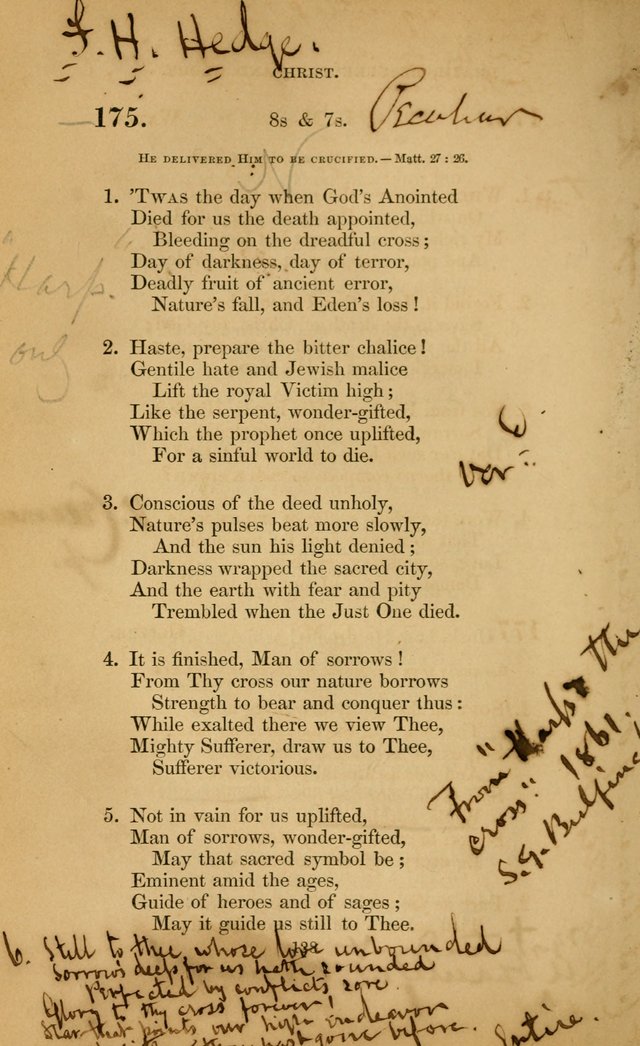 F. H. Hedge.
CHRIST.
175.
8s & 7s. Peculiar
HE DELIVERED HIM TO BE CRUCIFIED.—Matt. 27 : 26.
1. 'TWAS the day when God's Anointed
Died for us the death appointed,
Bleeding on the dreadful cross;
Day of darkness, day of terror,
Deadly fruit of ancient error,
Nature's fall, and Eden's loss!
"Harp."
only
2. Haste, prepare the bitter chalice!
Gentile hate and Jewish malice
Lift the royal Victim high;
Like the serpent, wonder-gifted,
Which the prophet once uplifted,
For a sinful world to die.
var:
3. Conscious of the deed unholy,
Nature's pulses beat more slowly,
And the sun his light denied;
Darkness wrapped the sacred city,
And the earth with fear and pity
Trembled when the Just One died.
4. It is finished, Man of sorrows!
From Thy cross our nature borrows
Strength to bear and conquer thus:
While exalted there we view Thee,
Mighty Sufferer, draw us to Thee,
Sufferer victorious.
From "Harp & the
cross". 1861.
S. G. Bulfinch
5. Not in vain for us uplifted,
Man of sorrows, wonder-gifted,
May that sacred symbol be;
Eminent amid the ages,
Guide of heroes and of sages;
May it guide us still to Thee.
138
6. Still to thee, whose love unbounded
Sorrow's deeps for us hath sounded
Perfected by conflicts sore.
Glory to thy cross forever!
Star that points our high endeavor
hast gone before. Entire.